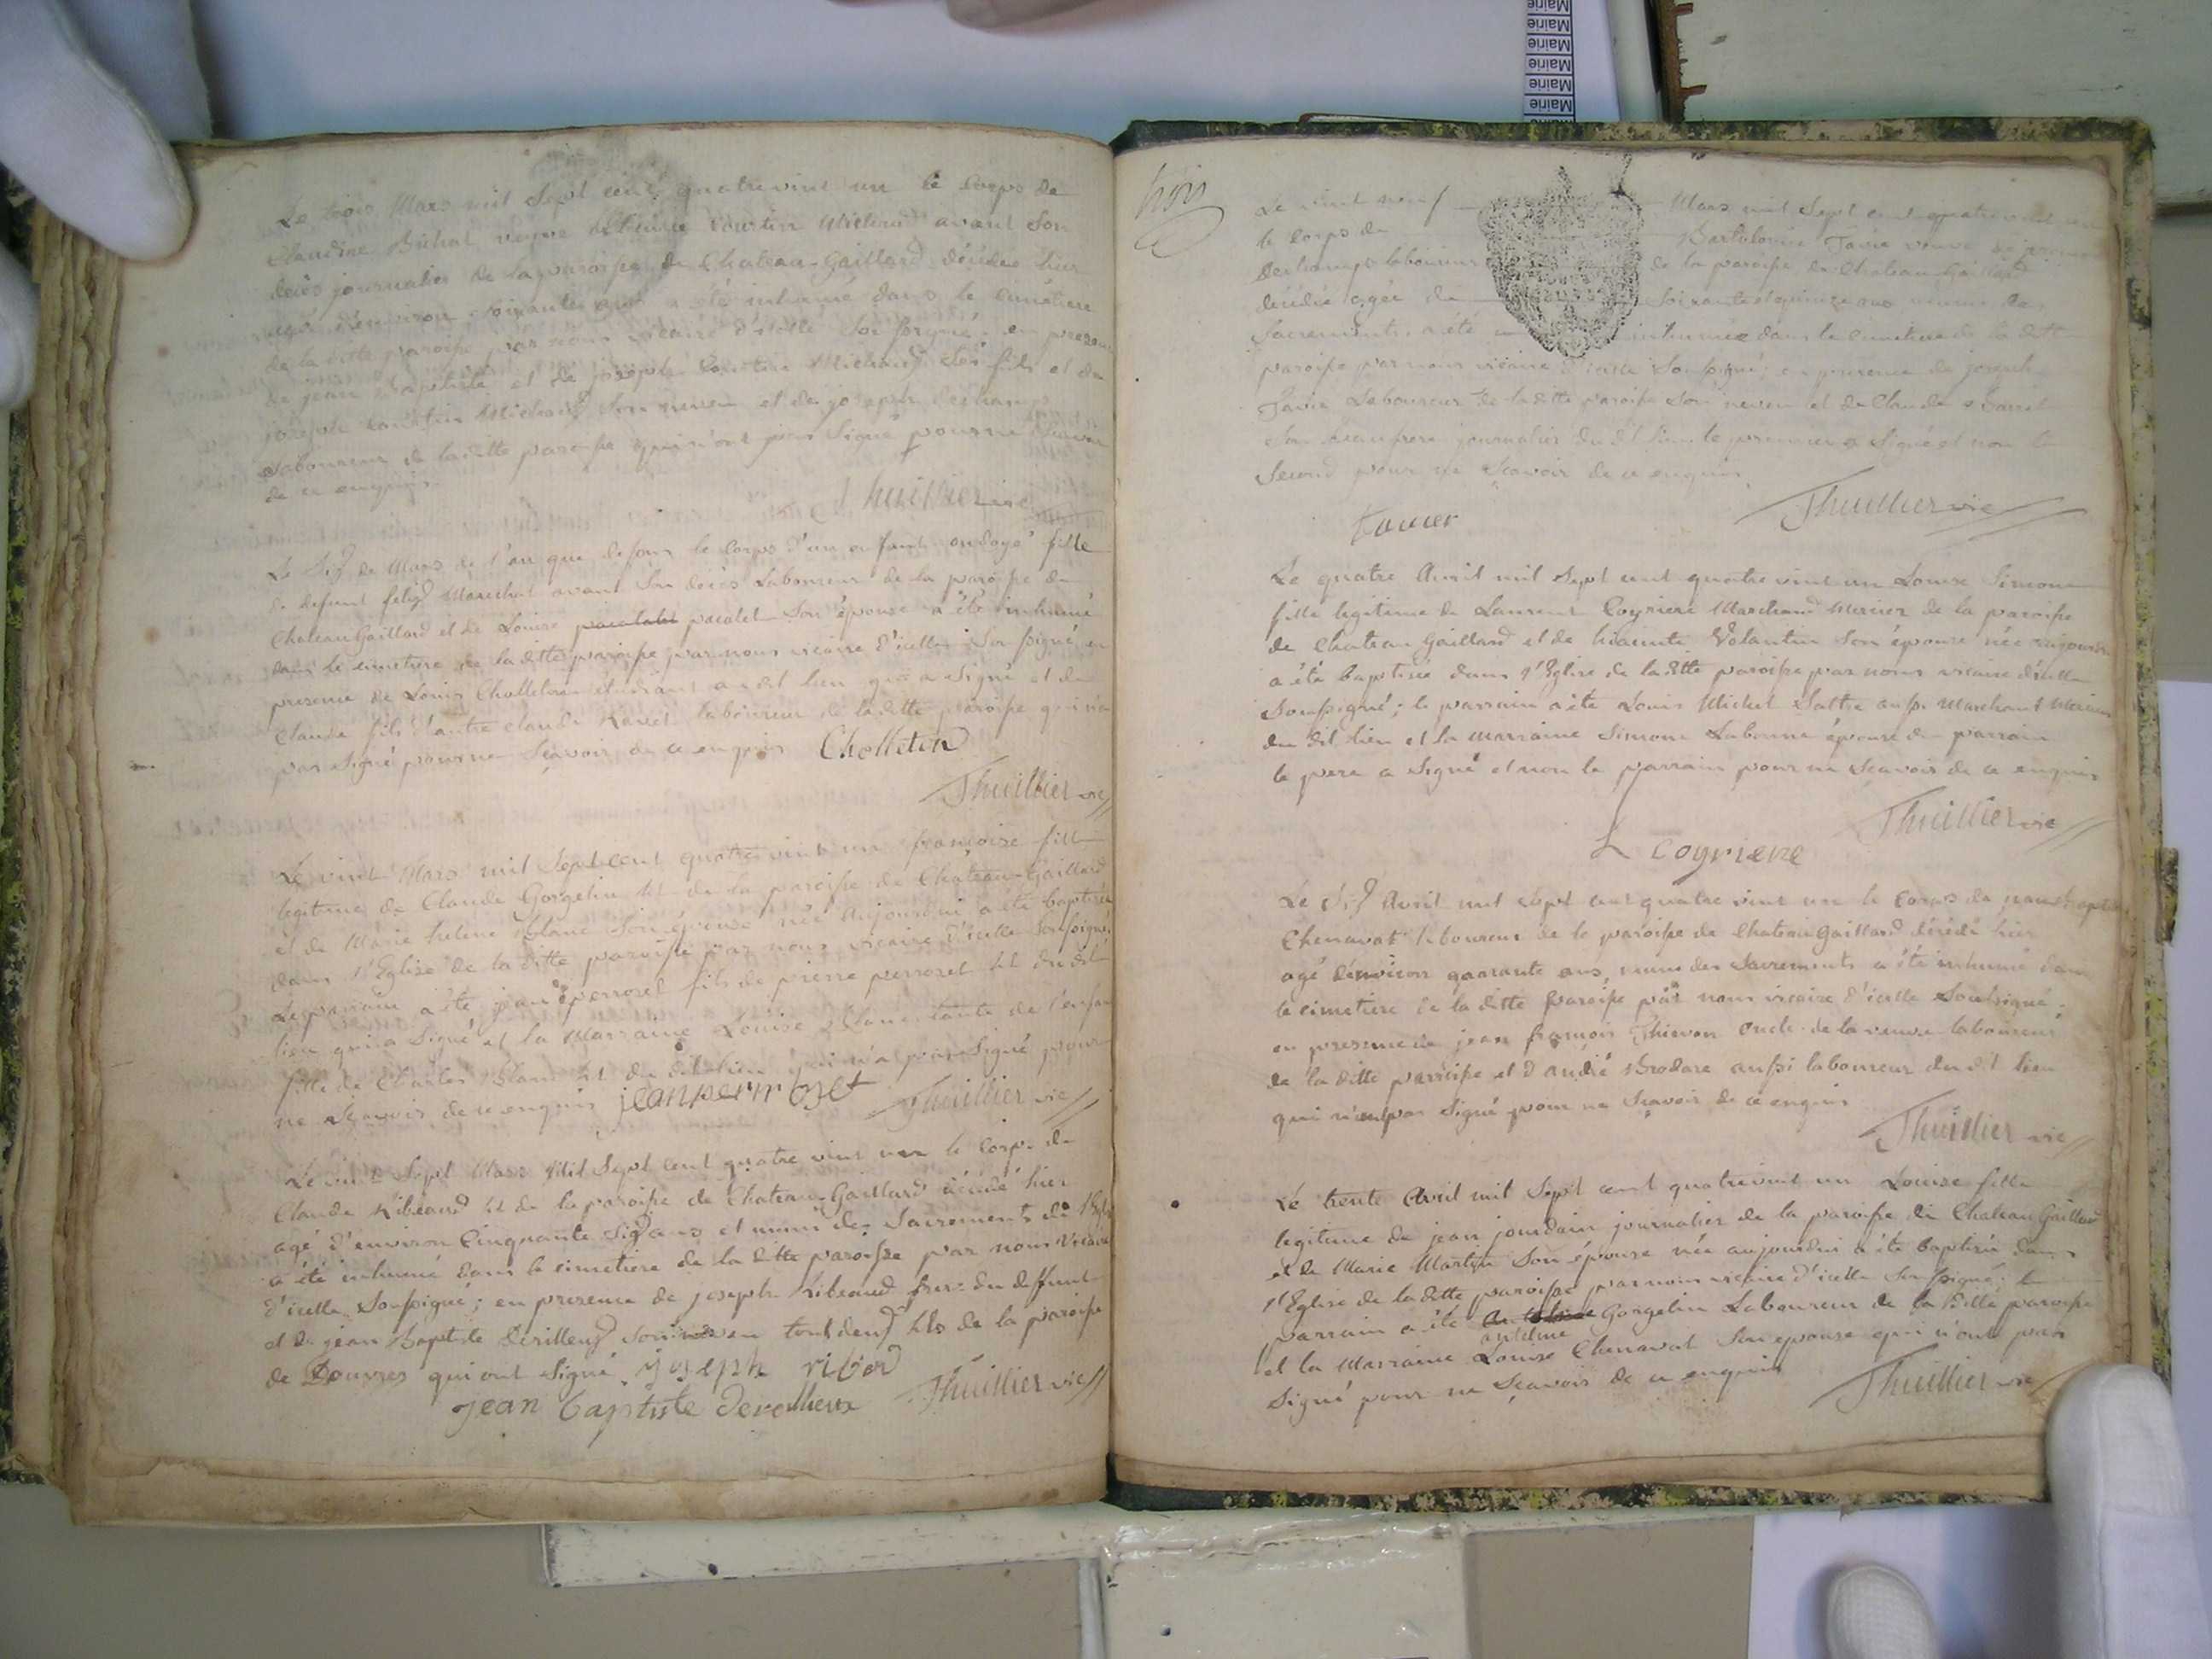 Mairie
Mairie
Mairie
Mairie
Mairie
Mairie
Le trois Mars mil Sept cent quatre vint un le Corps de
Claudine Buchat veuve Courtin Michaud avant Son
décès journalier de la paroisse de Chateau-Gaillard décédée hier
agée d'environ soixante ans a été inhumé dans le cimetiere
de la ditte paroisse par nous vicaire d'icelle Soussigné, en presence
de jean Baptiste et de joseph Courtin Michaud Ses fils et de
joseph Courtin Michaud Son neveu et de joseph Deschamps
Laboureur de la ditte paroisse qui n'ont pas Signé pour ne Scavoir
de ce enquis
Thuillier vic
Le Six de Mars de l'an que dessus le Corps d'un enfant ondoyé fille
de defunt felix Marechal avant Son décès Laboureur de la paroisse de
Chateau Gaillard et de Louise pacalet Son épouse a été inhumé
dans le cimetiere de la ditte paroisse par nous vicaire d'icelle Soussigné, en
presence de Louis Cholleton étudiant au dit lieu qui a Signé et de
Claude fils d'autre Claude Ravet laboureur de la ditte paroisse qui n'a
pas Signé pour ne Scavoir de ce enquis Cholleton
Thuillier vic
Le vint Mars mil Sept cent quatre vint un francoise fille
legitime de Claude Gorgelin lt de la paroisse de Chateau-Gaillard
et de Marie helene Blanc Son épouse née Aujourdui a été baptisée
dans l'Eglise de la ditte paroisse par nous vicaire d'icelle Soussigné,
Le parrain a été jean perrozet fils de pierre perrozet lt du dit
lieu qui a Signé et la Marraine Louise Blanc tante de l'enfant
fille de Charles Blanc lt du dit lieu qui n'a pas Signé pour
ne Scavoir de ce enquis jean perrrozet Thuillier vic
Le vint Sept Mars Mil Sept cent quatre vint un le Corps de
Claude Ribeaud lt de la paroisse de Chateau-Gaillard décédé hier
agé d'environ Cinquante Six ans et muni des Sacrements de l'Eglise
a été inhumé dans le cimetiere de la ditte paroisse par nous Vicaire
d'icelle Soussigné; en presence de joseph Ribeaud frere du deffunt
et de jean Baptiste Derilleux Son neveu tout deux lts de la paroisse
de Douvres qui ont Signé joseph ribod
jean baptiste derelleux Thuillier vic
trois
Le vint neuf Mars mil Sept cent quatre vint un
le Corps de Bartelomie Tavie veuve de
Deschamps laboureur de la paroisse de Chateau-Gaillard
décédée agée de Soixante et quinze ans munie des
Sacrements, a été inhumée dans le cimetiere de la ditte
paroisse par nous vicaire d'icelle Soussigné; en presence de joseph
Tavie Laboureur de la ditte paroisse Son neveu et de Claude Barret
Son beaufrere journalier du dit lieu le premier a Signé et non le
Second pour ne Scavoir de ce enquis
Thuillier vic
Le quatre Avril mil Sept cent quatre vint un Louise Simone
fille legitime de Laurent Coyriere Marchand Mercier de la paroisse
de Chateau Gaillard et de hiacinte Volantin Son épouse née aujourdui
a été baptisée dans l'Eglise de la ditte paroisse par nous vicaire d'icelle
Soussigné; le parrain a été Louis Michel Sattre aussi Marchand Mercier
du dit lieu et la Marraine Simone Labonne épouse du parrain
le pere a Signé et non le parrain pour ne Scavoir de ce enquis
Thuillier vic
L coyriere
Le Six Avril mil Sept cent quatre vint un le Corps de jean baptiste
Chenavat laboureur de la paroisse de Chateau Gaillard décédé hier
agé d'environ quarante ans, muni des Sacrements a été inhumé dans
le cimetiere de la ditte paroisse par nous vicaire d'icelle Soussigné;
en presence de jean francois Thievon oncle de la veuve laboureur
de la ditte paroisse et d'andré Brodare aussi laboureur du dit lieu
qui n'ont pas Signé pour ne Scavoir de ce enquis
Thuillier vic
Le trente Avril mil Sept cent quatre vint un Louise fille
legitime de jean jourdain journalier de la paroisse de Chateau Gaillard
et de Marie Martin Son épouse née aujourdui a été baptisée dans
l'Eglise de la ditte paroisse par nous vicaire d'icelle Soussigné; le
parrain a été antelme Gorgelin Laboureur de la ditte paroisse
et la Marraine Louise Chenavat Son epouse qui n'ont pas
Signé pour ne Scavoir de ce enquis Thuillier vic